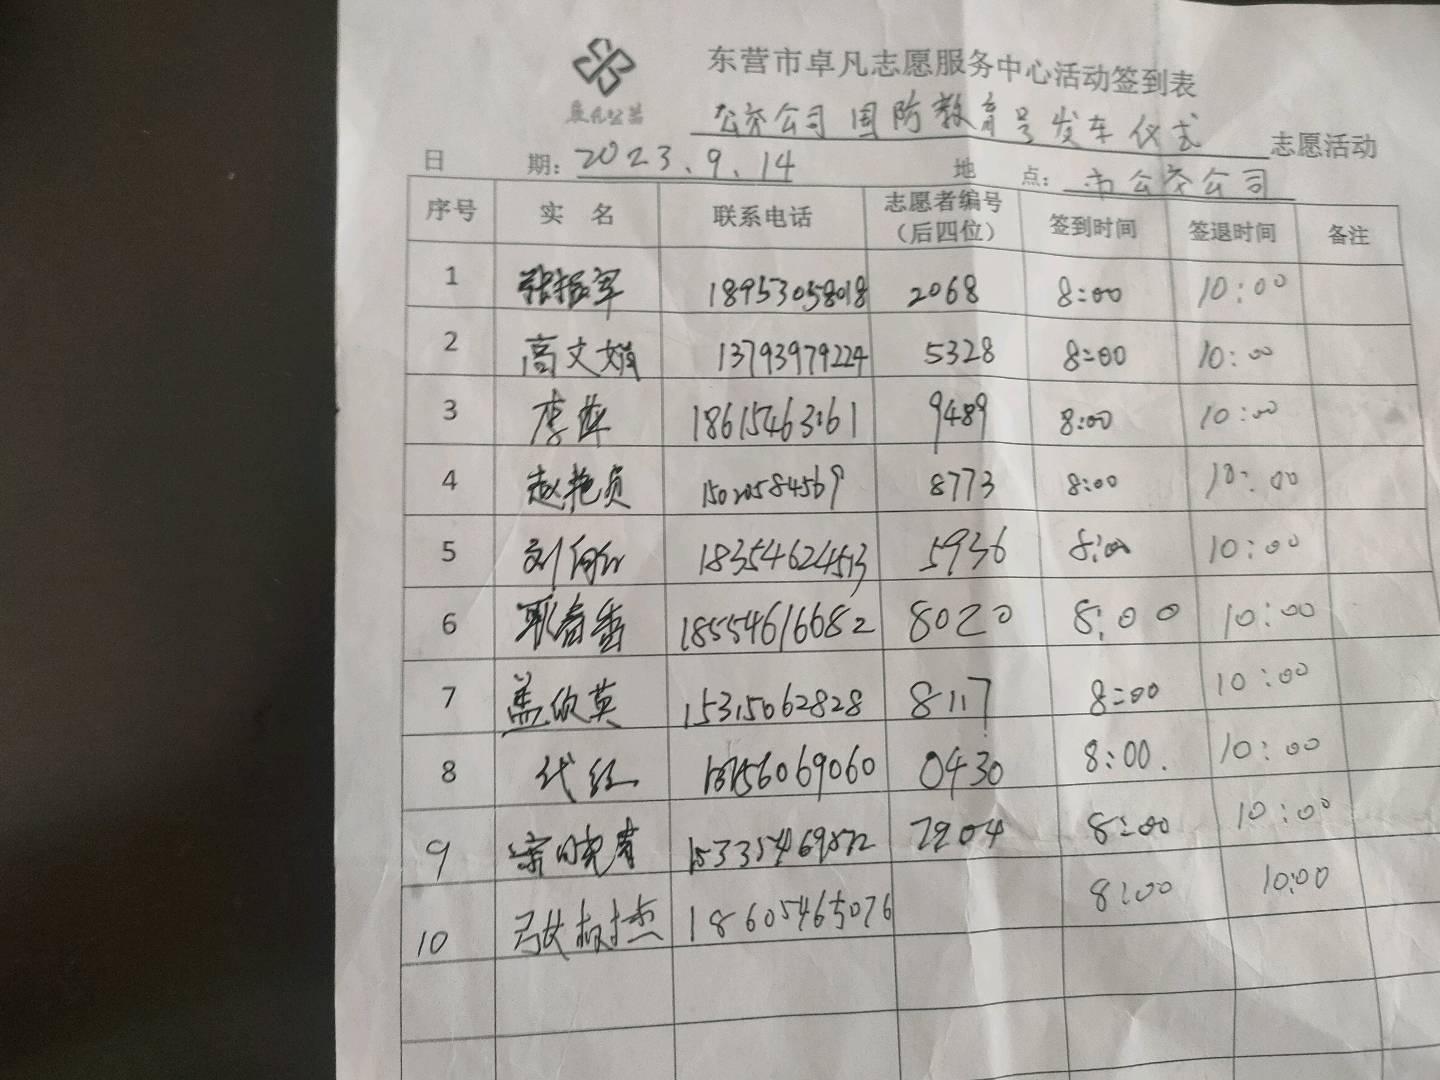 东营市卓凡志愿服务中心活动签到表
卓凡公益
公交公司国防教育号发车仪式 志愿活动
日 期: 2023.9.14 地 点: 市公交公司
序号 实 名 联系电话 志愿者编号(后四位) 签到时间 签退时间 备注
1 张振军 18953058018 2068 8:00 10:00
2 高文娟 13793979224 5328 8:00 10:00
3 李萍 18615463161 9489 8:00 10:00
4 赵艳贞 15020584569 8773 8:00 10:00
5 刘 18354624513 5936 8:00 10:00
6 耿春香 18554616682 8020 8:00 10:00
7 盖欣英 15315062828 8117 8:00 10:00
8 代红 0430 8:00. 10:00
9 7204 8:00 10:00
10 18605465076 8:00 10:00